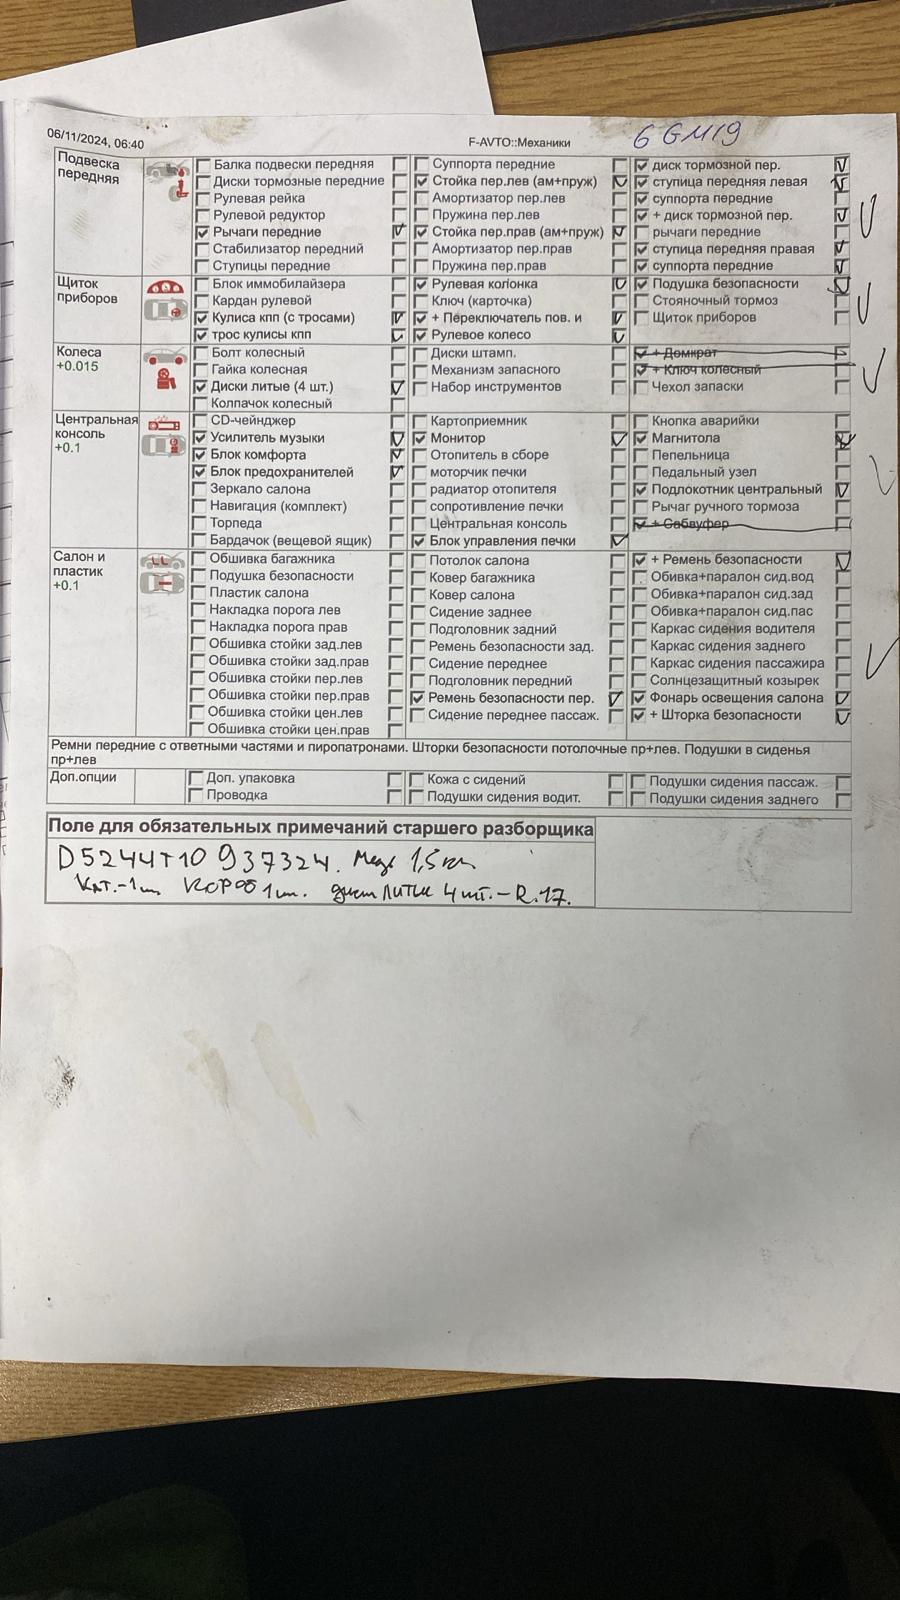 06/11/2024, 06:40 F-AVTO::Механики 6 GM19
Подвеска передняя
Балка подвески передняя Суппорта передние диск тормозной пер.
Диски тормозные передние Стойка пер.лев (ам+пруж) ступица передняя левая
Рулевая рейка Амортизатор пер.лев суппорта передние
Рулевой редуктор Пружина пер.лев + диск тормозной пер.
Рычаги передние Стойка пер.прав (ам+пруж) рычаги передние
Стабилизатор передний Амортизатор пер.прав ступица передняя правая
Ступицы передние Пружина пер.прав суппорта передние
Щиток приборов
Блок иммобилайзера Рулевая колонка Подушка безопасности
Кардан рулевой Ключ (карточка) Стояночный тормоз
Кулиса кпп (с тросами) + Переключатель пов. и Щиток приборов
трос кулисы кпп Рулевое колесо
Колеса
+0.015
Болт колесный Диски штамп. + Домкрат
Гайка колесная Механизм запасного + Ключ колесный
Диски литые (4 шт.) Набор инструментов Чехол запаски
Колпачок колесный
Центральная консоль
+0.1
CD-чейнджер Картоприемник Кнопка аварийки
Усилитель музыки Монитор Магнитола
Блок комфорта Отопитель в сборе Пепельница
Блок предохранителей моторчик печки Педальный узел
Зеркало салона радиатор отопителя Подлокотник центральный
Навигация (комплект) сопротивление печки Рычаг ручного тормоза
Торпеда Центральная консоль + Сабвуфер
Бардачок (вещевой ящик) Блок управления печки
Салон и пластик
+0.1
Обшивка багажника Потолок салона + Ремень безопасности
Подушка безопасности Ковер багажника Обивка+паралон сид.вод
Пластик салона Ковер салона Обивка+паралон сид.зад
Накладка порога лев Сидение заднее Обивка+паралон сид.пас
Накладка порога прав Подголовник задний Каркас сидения водителя
Обшивка стойки зад.лев Ремень безопасности зад. Каркас сидения заднего
Обшивка стойки зад.прав Сидение переднее Каркас сидения пассажира
Обшивка стойки пер.лев Подголовник передний Солнцезащитный козырек
Обшивка стойки пер.прав Ремень безопасности пер. Фонарь освещения салона
Обшивка стойки цен.лев Сидение переднее пассаж. + Шторка безопасности
Обшивка стойки цен.прав
Ремни передние с ответными частями и пиропатронами. Шторки безопасности потолочные пр+лев. Подушки в сиденья
пр+лев
Доп.опции
Доп. упаковка Кожа с сидений Подушки сидения пассаж.
Проводка Подушки сидения водит. Подушки сидения заднего
Поле для обязательных примечаний старшего разборщика
D5244T10 937324. Медь 1,5кг
Кат.-1шт короб 1шт. диск литые 4шт.-R.17.